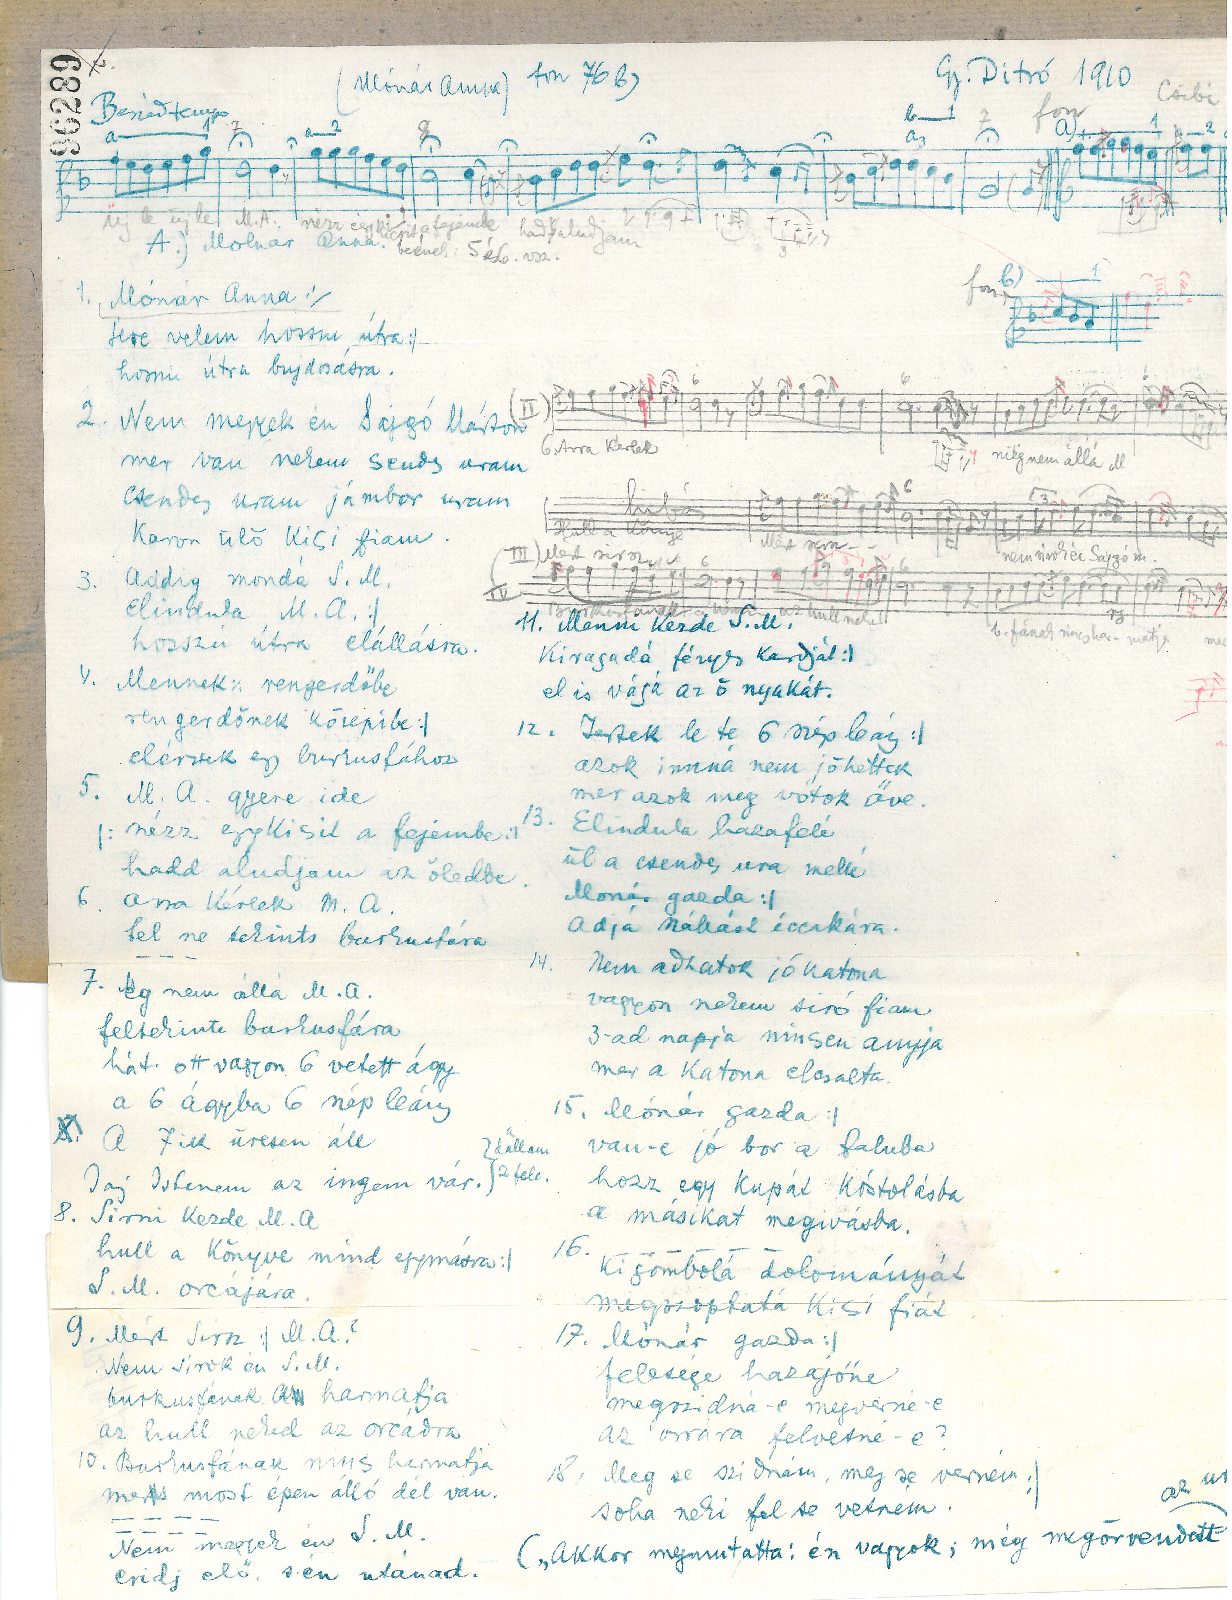 96289
(Mónár Anna) fon 76 b)
Gy. Ditró 1910
fon
Csibi
Beszédtempo
A.) Molnár Anna.
fon b)
1. Mónár Anna :/
jere velem hosszu útra :/
hosszu útra bujdosásra.
2. Nem megyek én Sajgó Márton
mer van nekem sendes uram
Csendes uram jámbor uram
karon ülő kisi fiam.
3. Addig mondá S. M.
elindula M. A. :/
hosszú útra elállásra.
4. Mennek :: rengerdőbe
rengerdőnek közepibe :/
elérnek egy burkusfához
5. M. A. gyere ide
/: nézz egykisit a fejembe :/
hadd aludjam az öledbe.
6. Arra kérlek M. A.
fel ne tekints burkusfára
7. Ég nem állá M. A.
feltekinte burkusfára
hát ott vagyon 6 vetett ágy
a 6 ágyba 6 szép leány
A 7ik üresen áll
Jaj Istenem az ingem vár.
8. Sirni kezde M. A
hull a könyve mind egymásra :/
S. M. orcájára.
9. Mért sirsz :/ M. A.?
Nem sirok én S. M.
burkusfának harmatja
az hull neked az orcádra
10. Burkusfának nincs harmatja
mert most épen álló dél van.
Nem megyek én S. M.
eridj elő, s én utánad.
(II)
6. Arra kérlek
még nem állá M
hibás
Hull a könyve
Mért sirsz
nem sirok én Sajgó M.
(III) Mért sirsz
IV
b. fának nincs har-matja
11. Menni kezde S. M.
Kiragadá fényes kardját :/
el is vágá az ő nyakát.
12. Jertek le te 6 szép leány :/
azok immá nem jöhettek
mer azok meg vótok őve.
13. Elindula hazafelé
ül a csendes ura mellé
Monár gazda :/
Adjá szállást éccakára.
14. Nem adhatok jó katona
vagyon nekem siró fiam
3-ad napja nincsen annyja
mer a katona elcsalta.
15. Mónár gazda :/
van-e jó bor a faluba
hozz egy kupát kóstolásba
a másikat megivásba.
16.
Kigombolá dolományát
megszoptatá kisi fiát
17. Mónár gazda :/
felesége hazajőne
megszidná-e megverné-e
az orrára felvetné-e?
18. Meg se szidnám, meg se verném :/
soha neki fel se vetném.
(„Akkor megmutatta: én vagyok; még megörvendett